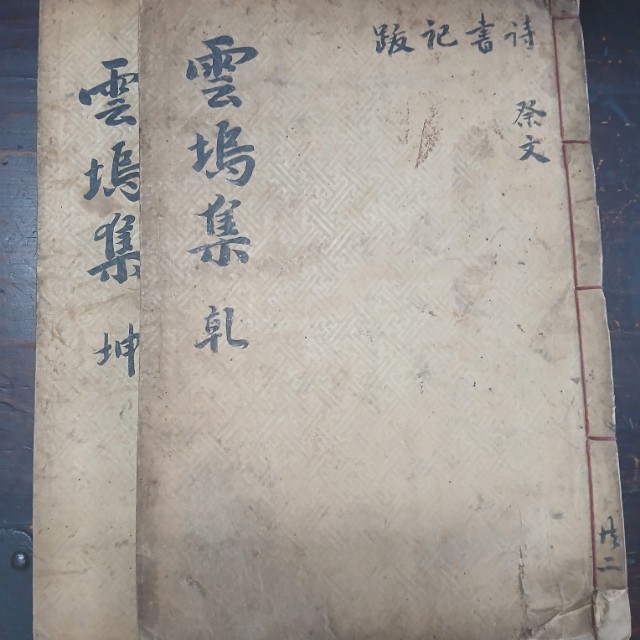 詩書記跋
祭文
共二
雲塢集 乾
雲塢集 坤